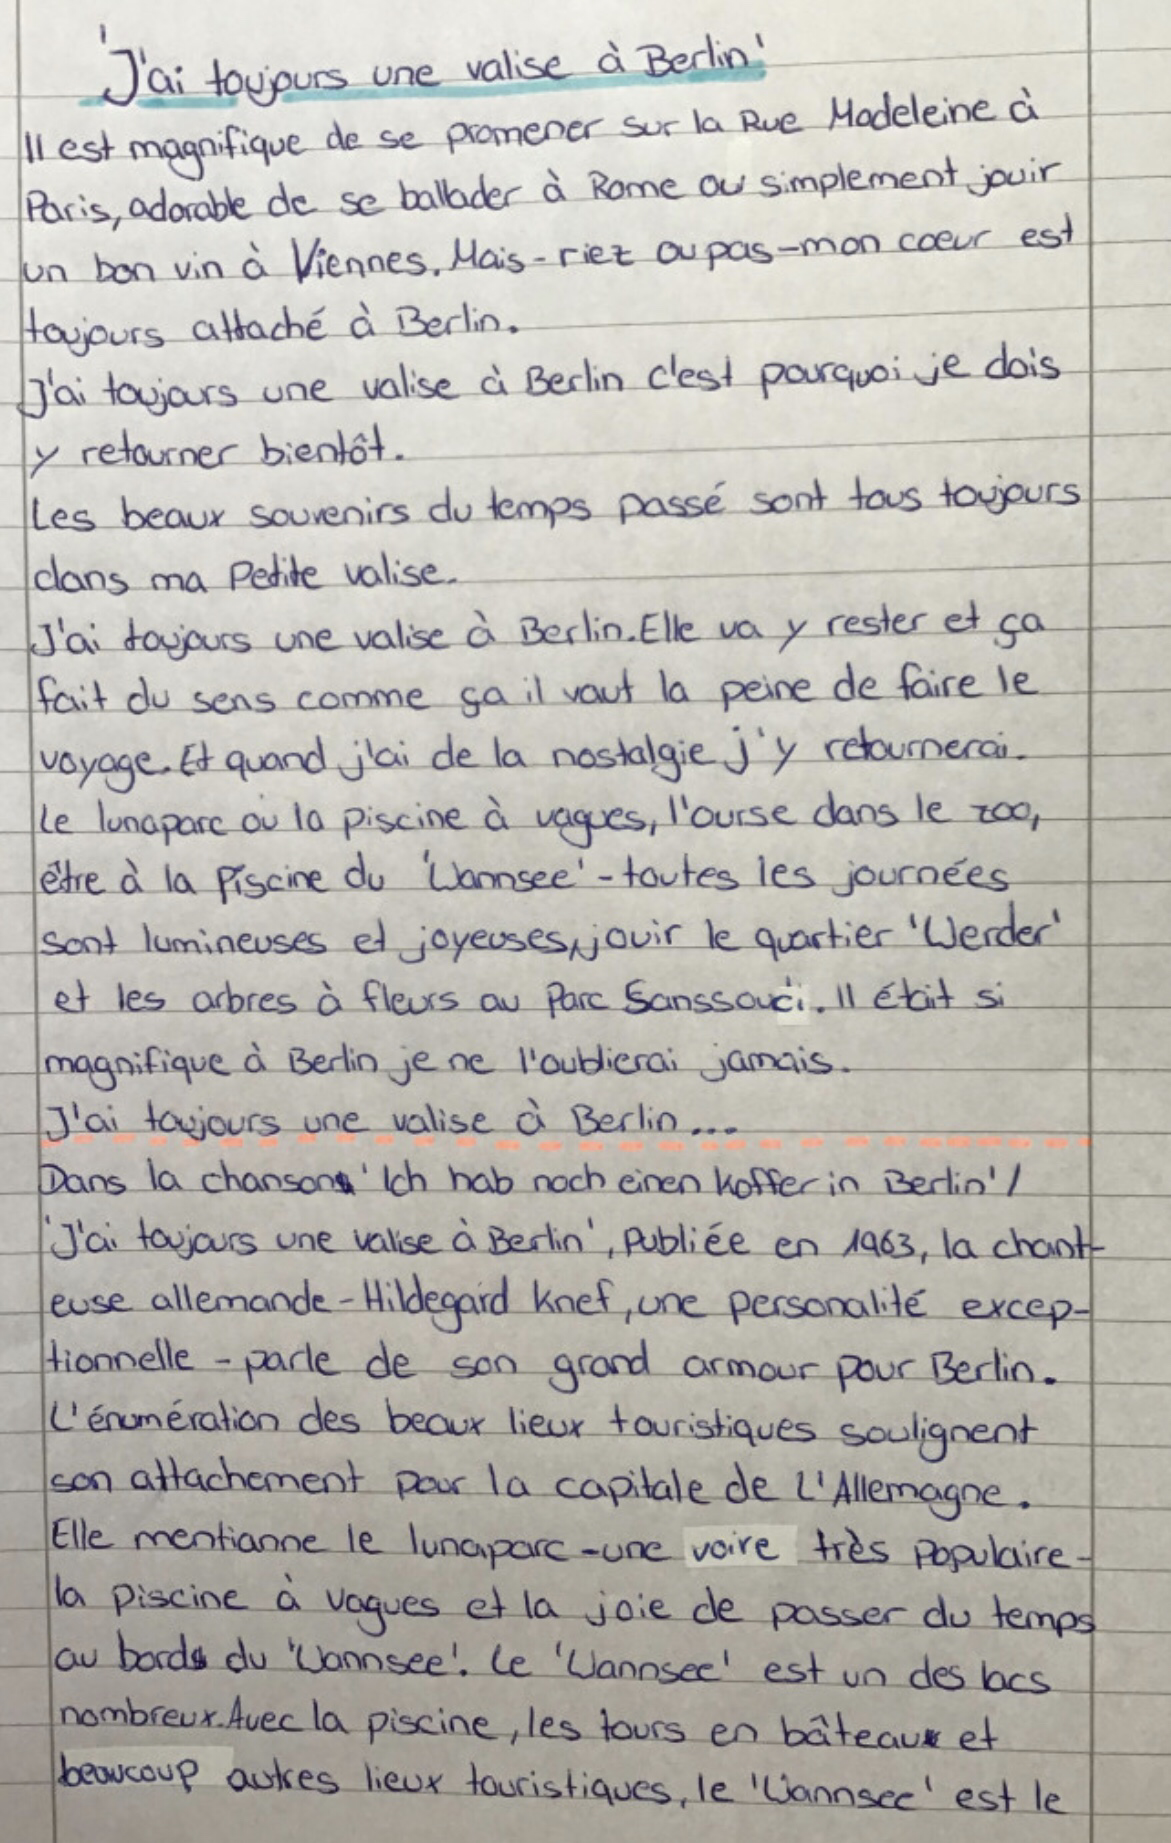 'J'ai toujours une valise à Berlin'
Il est magnifique de se promener sur la Rue Madeleine à
Paris, adorable de se ballader à Rome ou simplement jouir
un bon vin à Viennes. Mais - riez ou pas - mon coeur est
toujours attaché à Berlin.
J'ai toujours une valise à Berlin c'est pourquoi je dois
y retourner bientôt.
Les beaux souvenirs du temps passé sont tous toujours
dans ma Petite valise.
J'ai toujours une valise à Berlin. Elle va y rester et ça
fait du sens comme ça il vaut la peine de faire le
voyage. Et quand j'ai de la nostalgie j'y retournerai.
Le lunaparc ou la piscine à vagues, l'ourse dans le zoo,
être à la Piscine du 'Wannsee' - toutes les journées
sont lumineuses et joyeuses, jouir le quartier 'Werder'
et les arbres à fleurs au Parc Sanssouci. Il était si
magnifique à Berlin je ne l'oublierai jamais.
J'ai toujours une valise à Berlin...
Dans la chanson 'Ich hab noch einen Koffer in Berlin' /
'J'ai toujours une valise à Berlin', Publiée en 1963, la chant-
euse allemande - Hildegard Knef, une personalité excep-
tionnelle - parle de son grand armour pour Berlin.
L'énumération des beaux lieux touristiques soulignent
son attachement pour la capitale de L'Allemagne.
Elle mentionne le lunaparc - une voire très populaire -
la piscine à vagues et la joie de passer du temps
au bord du 'Wannsee'. Le 'Wannsee' est un des lacs
nombreux. Avec la piscine, les tours en bâteau et
beaucoup autres lieux touristiques, le 'Wannsee' est le